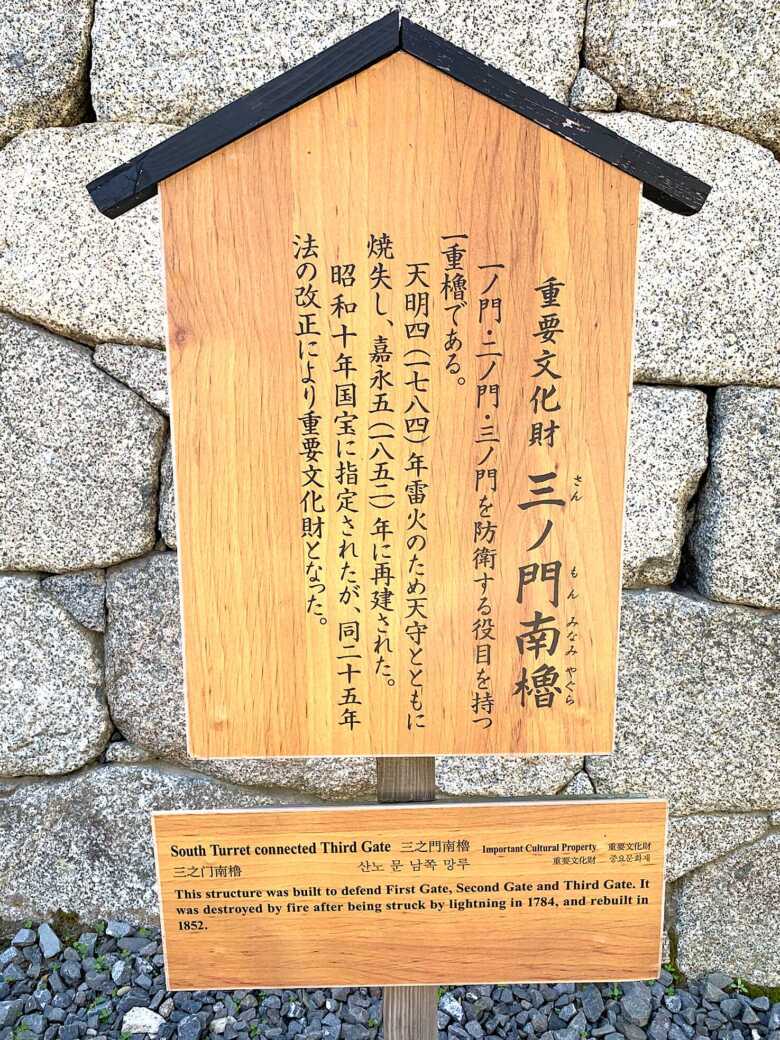 重要文化財 三ノ門南櫓
さん もん みなみ やぐら
一ノ門・二ノ門・三ノ門を防衛する役目を持つ
一重櫓である。
天明四(一七八四)年雷火のため天守とともに
焼失し、嘉永五(一八五二)年に再建された。
昭和十年国宝に指定されたが、同二十五年
法の改正により重要文化財となった。
South Turret connected Third Gate 三之門南櫓 Important Cultural Property 重要文化財
三之门南櫓 산노 문 남쪽 망루 重要文化财 중요문화재
This structure was built to defend First Gate, Second Gate and Third Gate. It
was destroyed by fire after being struck by lightning in 1784, and rebuilt in
1852.